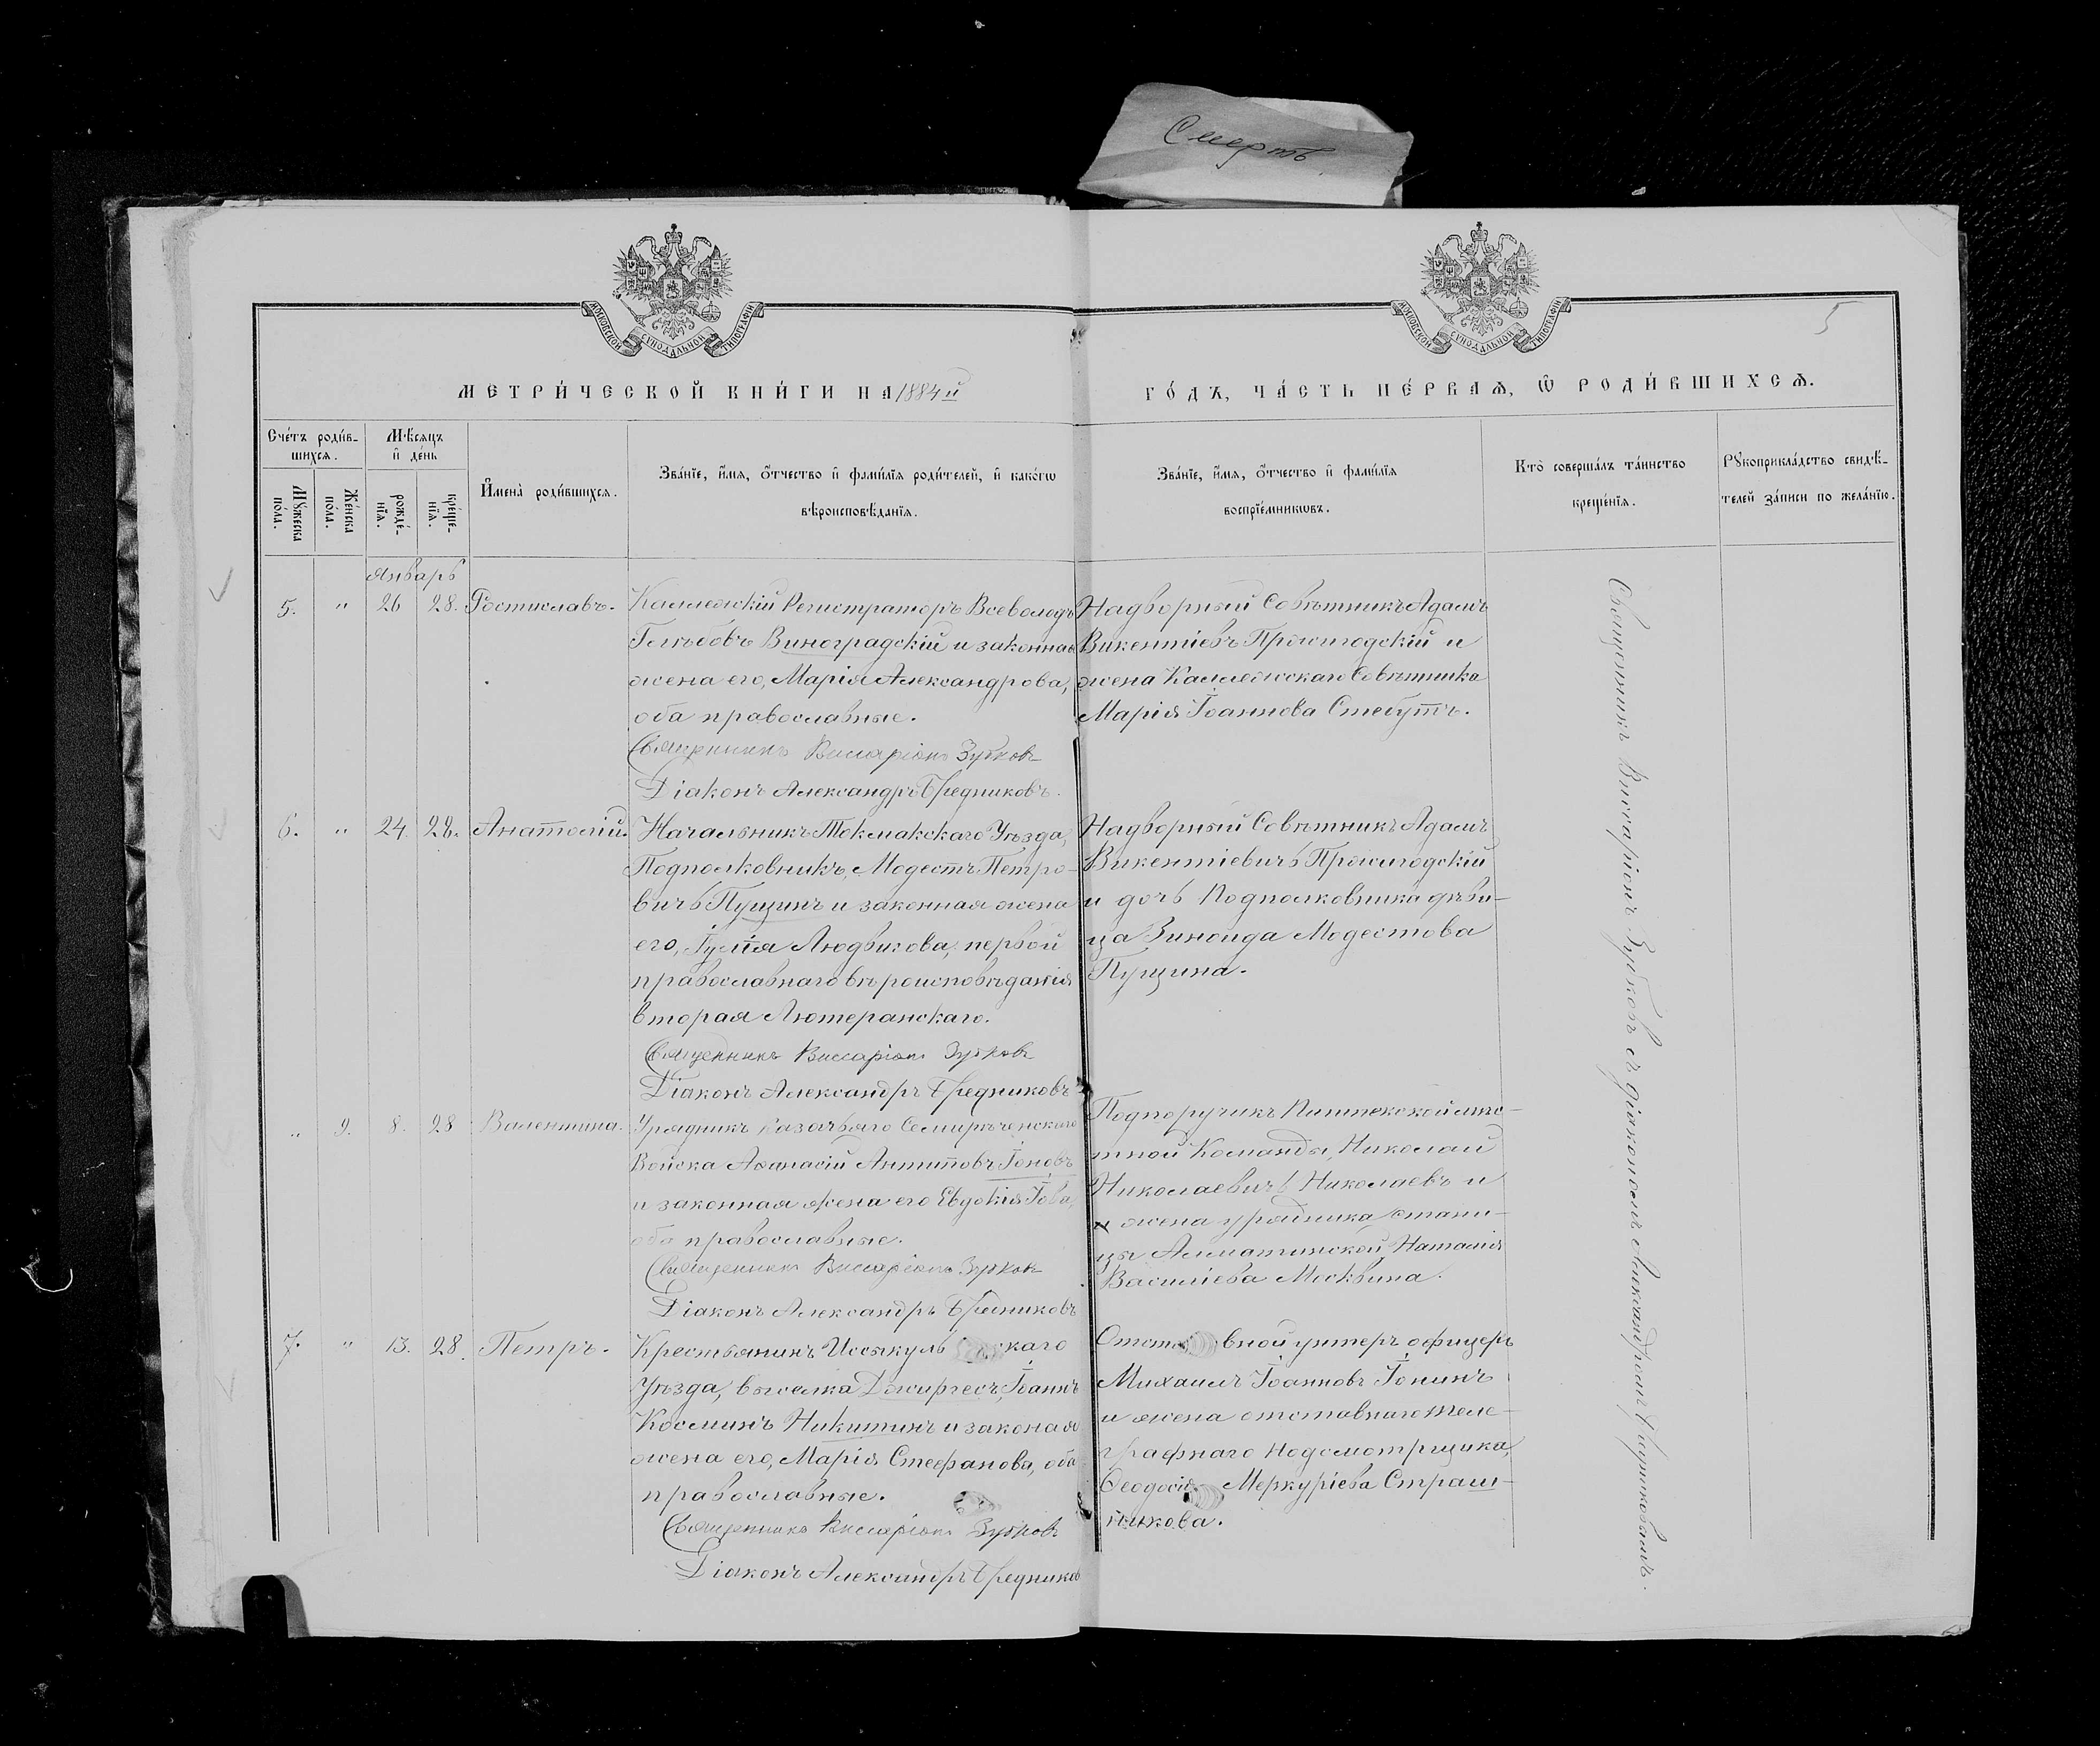 Смерть
МОСКОВСКОЙ СѴНОДАЛЬНОЙ ТИПОГРАФІИ
МОСКОВСКОЙ СѴНОДАЛЬНОЙ ТИПОГРАФІИ
5
МЕТРИ́ЧЕСКОЙ КНИ́ГИ НА 1884 й
ГО́ДЪ, ЧА́СТЬ ПЕ́РВАѦ, Ѿ РОДИ́ВШИХСѦ.
Сче́тъ роди́в-
шихсѧ.
Мꙋ́жеска по́ла.
Же́нска по́ла.
Мѣ́сѧцъ
и҆ де́нь
рожде́-нїѧ.
креще́-нїѧ.
И҆мена̀ роди́вшихсѧ.
Зва́нїе, и҆́мѧ, ѻ҆́тчество и҆ фами́лїѧ роди́телей, и҆ како́гѡ
вѣроисповѣ́данїѧ.
Зва́нїе, и҆́мѧ, ѻ҆́тчество и҆ фами́лїѧ
воспрїе́мникѡвъ.
Кто̀ соверша́лъ та́инство
креще́нїѧ.
Рꙋкоприкла́дство свидѣ́-
телей за́писи по жела́нїю.
Январь
5. " 26 28. Ростиславъ.
Коллежскій Регистраторъ Всеволодъ
Глѣбовъ Виноградскій и законная
жена его, Марія Александрова,
оба православные.
Священникъ Виссаріонъ Зубковъ
Діаконъ Александръ
Надворный Совѣтникъ Адамъ
Викентіевъ и
жена Коллежскаго Совѣтника
Марія Іоаннова Стебутъ.
6. " 24. 28. Анатолій.
Начальникъ Токмакскаго Уѣзда,
Подполковникъ, Модестъ Петро-
вичъ Пущинъ и законная жена
его, Іулія Людвикова, первой
православнаго вѣроисповѣданія
вторая Лютеранскаго.
Священникъ Виссаріонъ Зубковъ
Діаконъ Александръ
Надворный Совѣтникъ Адамъ
Викентіевичъ
и дочь Подполковника дѣви-
ца Зинаида Модестова
Пущина.
" 2. 8. 28 Валентина.
Урядникъ Казачьяго Семирѣченскаго
Войска Аѳанасій Антиповъ Іоновъ
и законная жена его Евдокія
оба православные.
Священникъ Виссаріонъ Зубковъ
Діаконъ Александръ
Подпоручикъ Пишпекской мѣс-
тной Команды, Николай
Николаевичъ Николаевъ и
жена урядника стани-
цы Алматинской, Наталія
Василіева Москвина.
7. " 13. 28. Петръ.
Крестьянинъ Иссыкуль скаго
Уѣзда, выселка Джиргесъ, Іоаннъ
Косминъ Никитинъ и законая
жена его, Марія Стефанова, оба
православные.
Священникъ Виссаріонъ Зубковъ
Діаконъ Александръ
Отставной унтеръ офицеръ
Михаилъ Іоанновъ Іонинъ
и жена отставнаго теле-
графнаго надсмотрщика,
Ѳеодосія Меркуріева Страш-
никова.
Священникъ Виссаріонъ Зубковъ съ діакономъ Александромъ